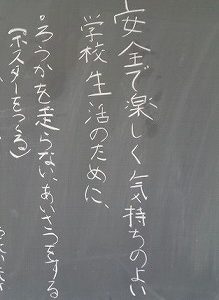 安全で楽しく気持ちのよい
学校生活のために、
・ろうかを走らない、あいさつをする
(ポスターをつくる)